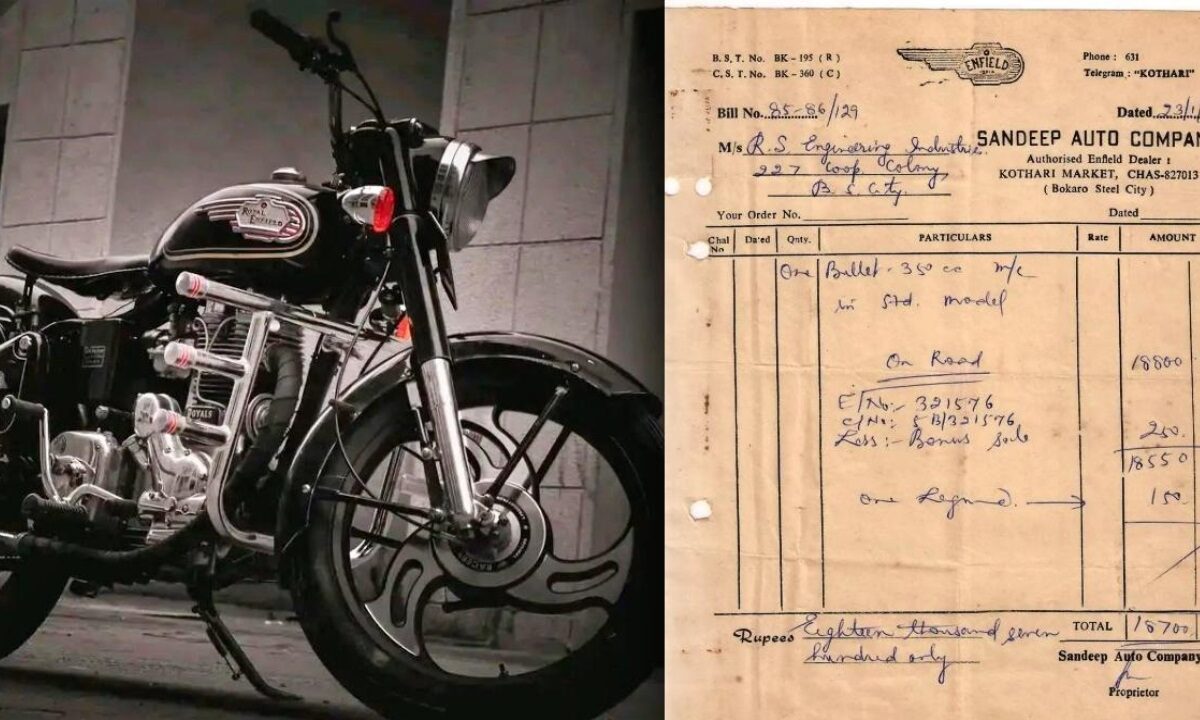 ROYAL
ENFIELD
ROYALS
B.S.T. No. BK-195 (R)
C.S.T. No. BK-360 (C)
ENFIELD
INDIA
Phone : 631
Telegram : "KOTHARI"
Bill No. 85-86/129
Dated 23/1
M/s R.S. Engineering Industries
227 Coop. Colony
B. S. City.
SANDEEP AUTO COMPAN
Authorised Enfield Dealer :
KOTHARI MARKET, CHAS-827013
( Bokaro Steel City )
Your Order No.
Dated
Chal No Dated Qnty. PARTICULARS Rate AMOUNT
One Bullet - 350 cc m/c
in Std. model
On Road 18800
E/No:- 321576
C/No: 5 B/321576
Less:- Bonus 250.
18550
One Legguard. 150
Rupees Eighteen thousand seven
hundred only
TOTAL 18700
Sandeep Auto Company
Proprietor